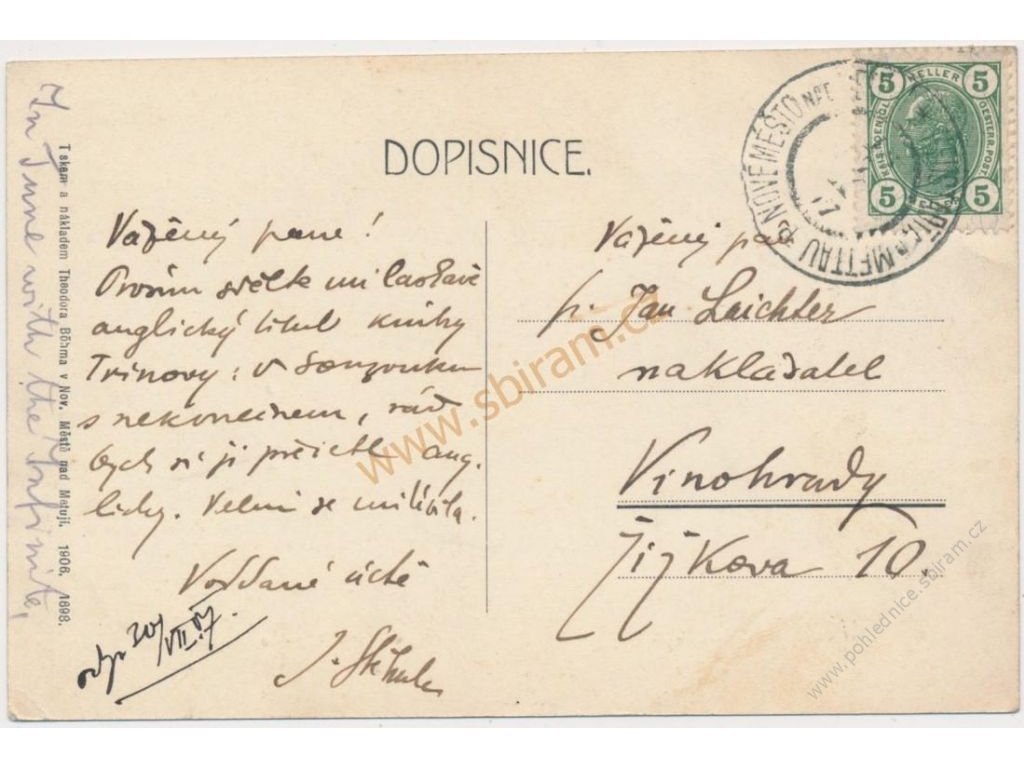 DOPISNICE.
Vážený pane!
Prosím sdělte mi laskavě
anglický titul knihy
Trinovy: V souzvuku
s nekonečnem, rád
bych si ji přečetl ang-
licky. Velmi se mi líbila.
V oddané úctě
odp 30/VII.07
Vážený pan
p. Jan Laichter
nakladatel
Vinohrady
Žižkova 10.
In Tune with the Infinite,
Tiskem a nákladem Theodora Böhma v Nov. Městě nad Metují. 1906. 1698.
NOVÉ MĚSTO
METTAU
5 HELLER 5
5 5
OESTERR. POST.
www.sbiram.cz
www.pohlednice.sbiram.cz